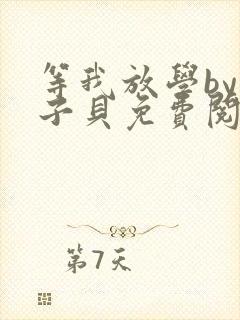 等我放學by
子貝免費閱
第7天